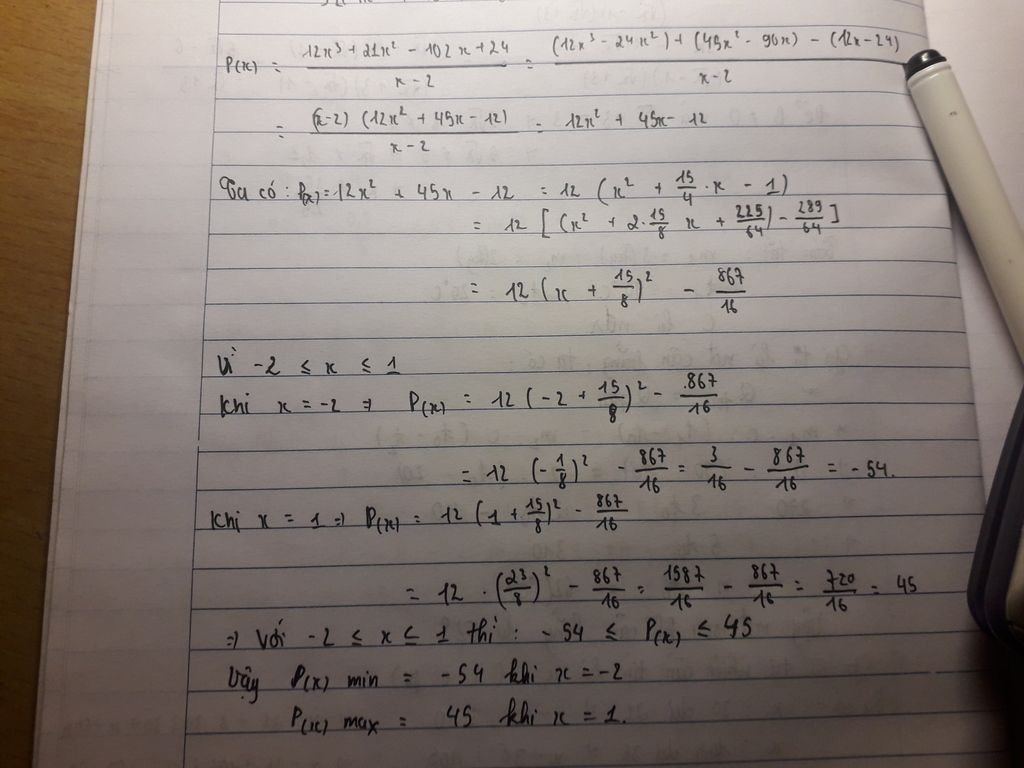 P(x) = (12x³ + 21x² - 102x + 24)/(x - 2) = ((12x³ - 24x²) + (45x² - 90x) - (12x - 24))/(x - 2)
= ((x-2) (12x² + 45x - 12))/(x - 2) = 12x² + 45x - 12
Ta có : P(x) = 12x² + 45x - 12 = 12 (x² + 15/4 . x - 1)
= 12 [(x² + 2. 15/8 x + 225/64) - 289/64]
= 12 (x + 15/8)² - 867/16
Vì -2 ≤ x ≤ 1
Khi x = -2 ⇒ P(x) = 12 (-2 + 15/8)² - 867/16
= 12 (-1/8)² - 867/16 = 3/16 - 867/16 = -54.
Khi x = 1 ⇒ P(x) = 12 (1 + 15/8)² - 867/16
= 12 . (23/8)² - 867/16 = 1587/16 - 867/16 = 720/16 = 45
⇒ Với -2 ≤ x ≤ 1 thì : -54 ≤ P(x) ≤ 45
Vậy P(x) min = -54 khi x = -2
P(x) max = 45 khi x = 1.